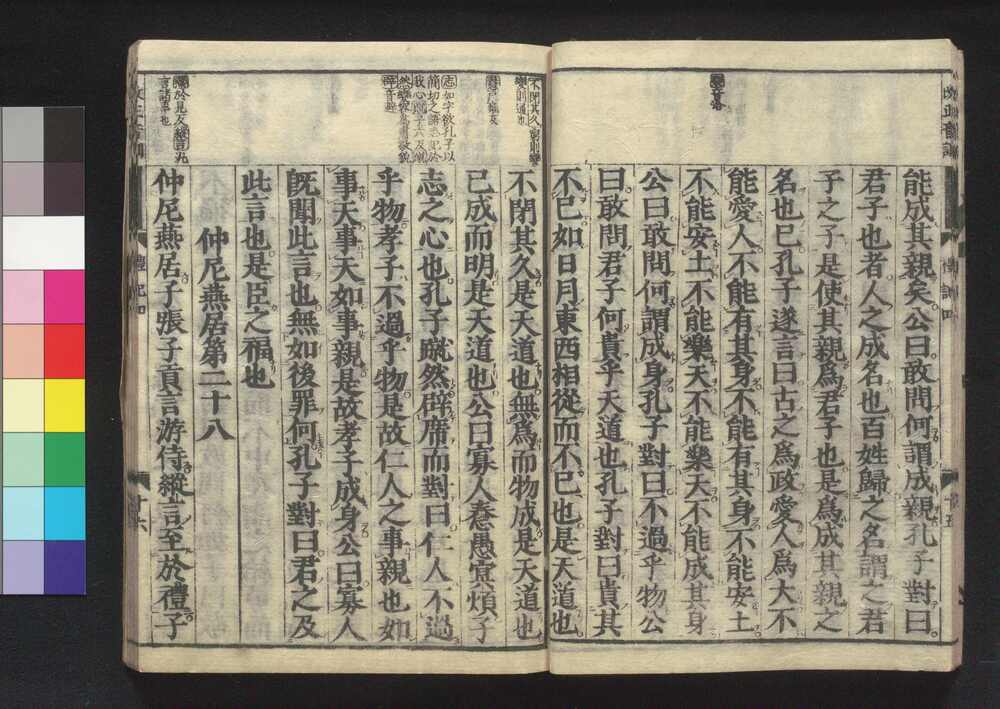 能成其親矣公曰敢問何謂成親孔子對曰
君子也者人之成名也百姓歸之名謂之君
子之子是使其親爲君子也是爲成其親之
名也已孔子遂言曰古之爲政愛人爲大不
能愛人不能有其身不能有其身不能安土
不能安土不能樂天不能樂天不能成其身
公曰敢問何謂成身孔子對曰不過乎物公
曰敢問君子何貴乎天道也孔子對曰貴其
不已如日月東西相從而不已也是天道也
不閉其久是天道也無爲而物成是天道也
已成而明是天道也公曰寡人憃愚冥煩子
志之心也孔子蹴然辟席而對曰仁人不過
乎物孝子不過乎物是故仁人之事親也如
事天事天如事親是故孝子成身公曰寡人
既聞此言也無如後罪何孔子對曰君之及
此言也是臣之福也
仲尼燕居第二十八
仲尼燕居子張子貢言游侍縱言至於禮子
禮記四
十六